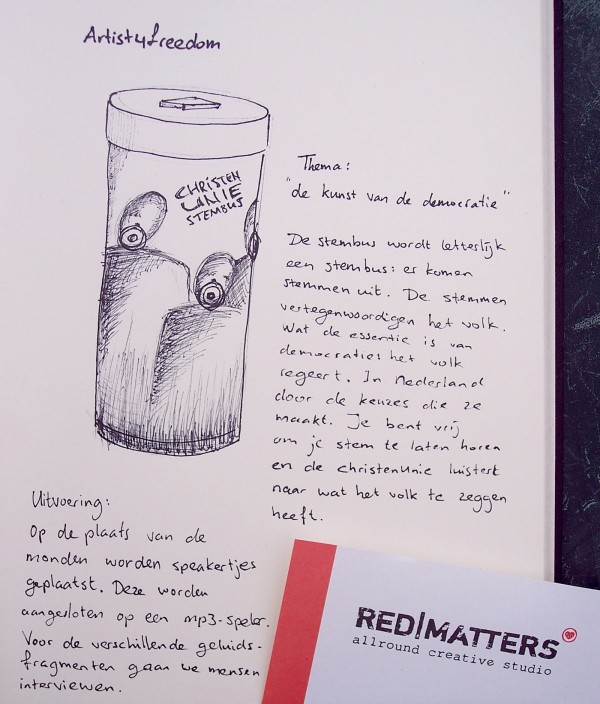 Artist4freedom
CHRISTEN
UNIE
STEMBUS
Thema:
"de kunst van de democratie"
De stembus wordt letterlijk
een stembus: er komen
stemmen uit. De stemmen
vertegenwoordigen het volk.
Wat de essentie is van
democratie: het volk
regeert. In Nederland
door de keuzes die ze
maakt. Je bent vrij
om je stem te laten horen
en de christenunie luistert
naar wat het volk te zeggen
heeft.
Uitvoering:
Op de plaats van de
monden worden speakertjes
geplaatst. Deze worden
aangesloten op een mp3-speler.
Voor de verschillende geluids-
fragmenten gaan we mensen
interviewen.
RED|MATTERS
allround creative studio